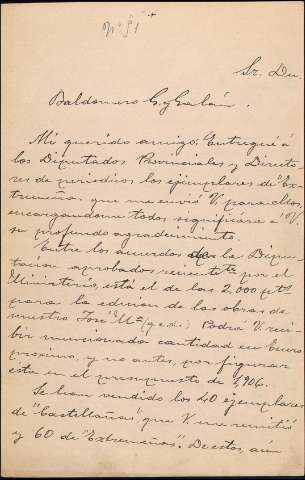 Nº 91
Sr. Dn.
Baldomero G. y Galán.
Mi querido amigo: Entregué á
los Diputados Provinciales y Directo
res de periodicos los ejemplares de "Ex
tremeñas" que me envió V. para ellos,
encargandome todos significára a V.
su profundo agradecimiento.
Entre los acuerdos de la Dipu-
tación aprobados recientete por el
Ministerio, está el de las 2,000 pts
para la edición de las obras de
nuestro José Mª (q.e.d.) Podrá V. reci
bir mencionada cantidad en Enero
proximo, y no antes, por figurar
ésta en el presupuesto de 1,906.
Se han vendido los 40 ejemplares
de "Castellanas" que V. me remitió
y 60 de "Extremeñas". De estos, aún